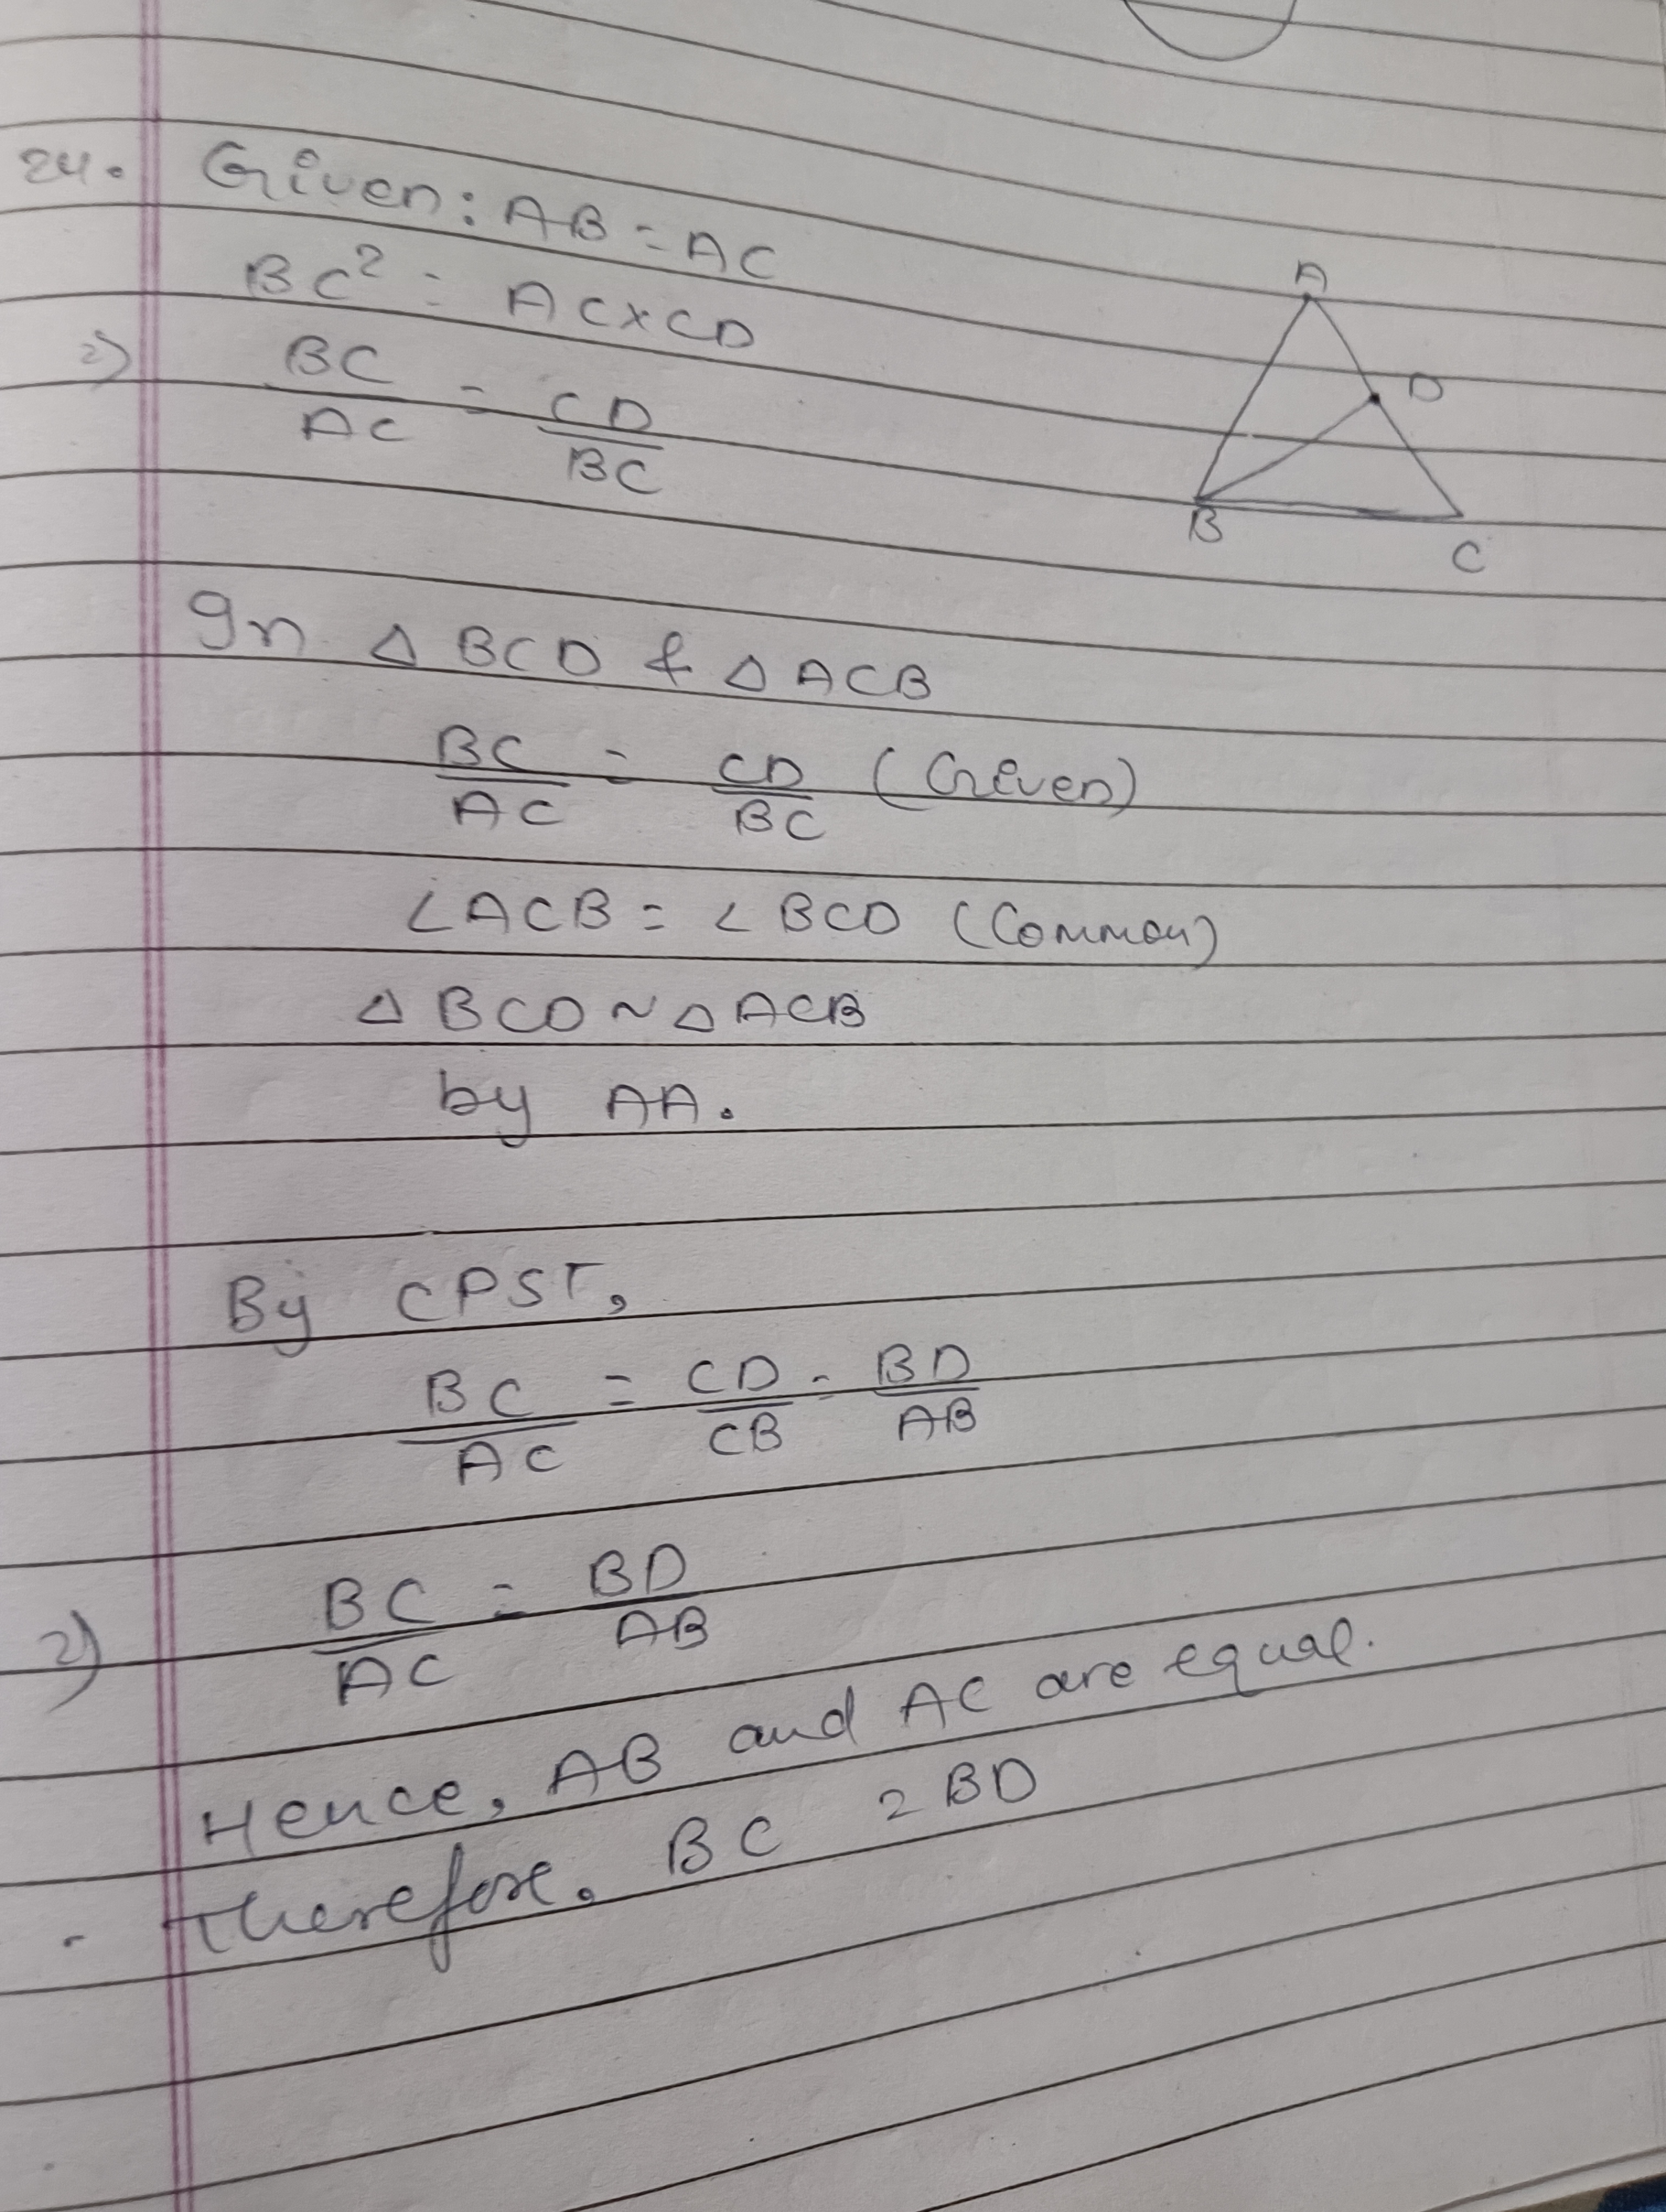 24. Given: AB = AC
BC² = AC×CD
=> BC/AC = CD/BC
A
D
B
C
In △BCD & △ACB
BC/AC = CD/BC (Given)
∠ACB = ∠BCD (Common)
△BCD ~ △ACB
by AA.
By CPST,
BC/AC = CD/CB = BD/AB
=> BC/AC = BD/AB
Hence, AB and AC are equal.
Therefore, BC = BD